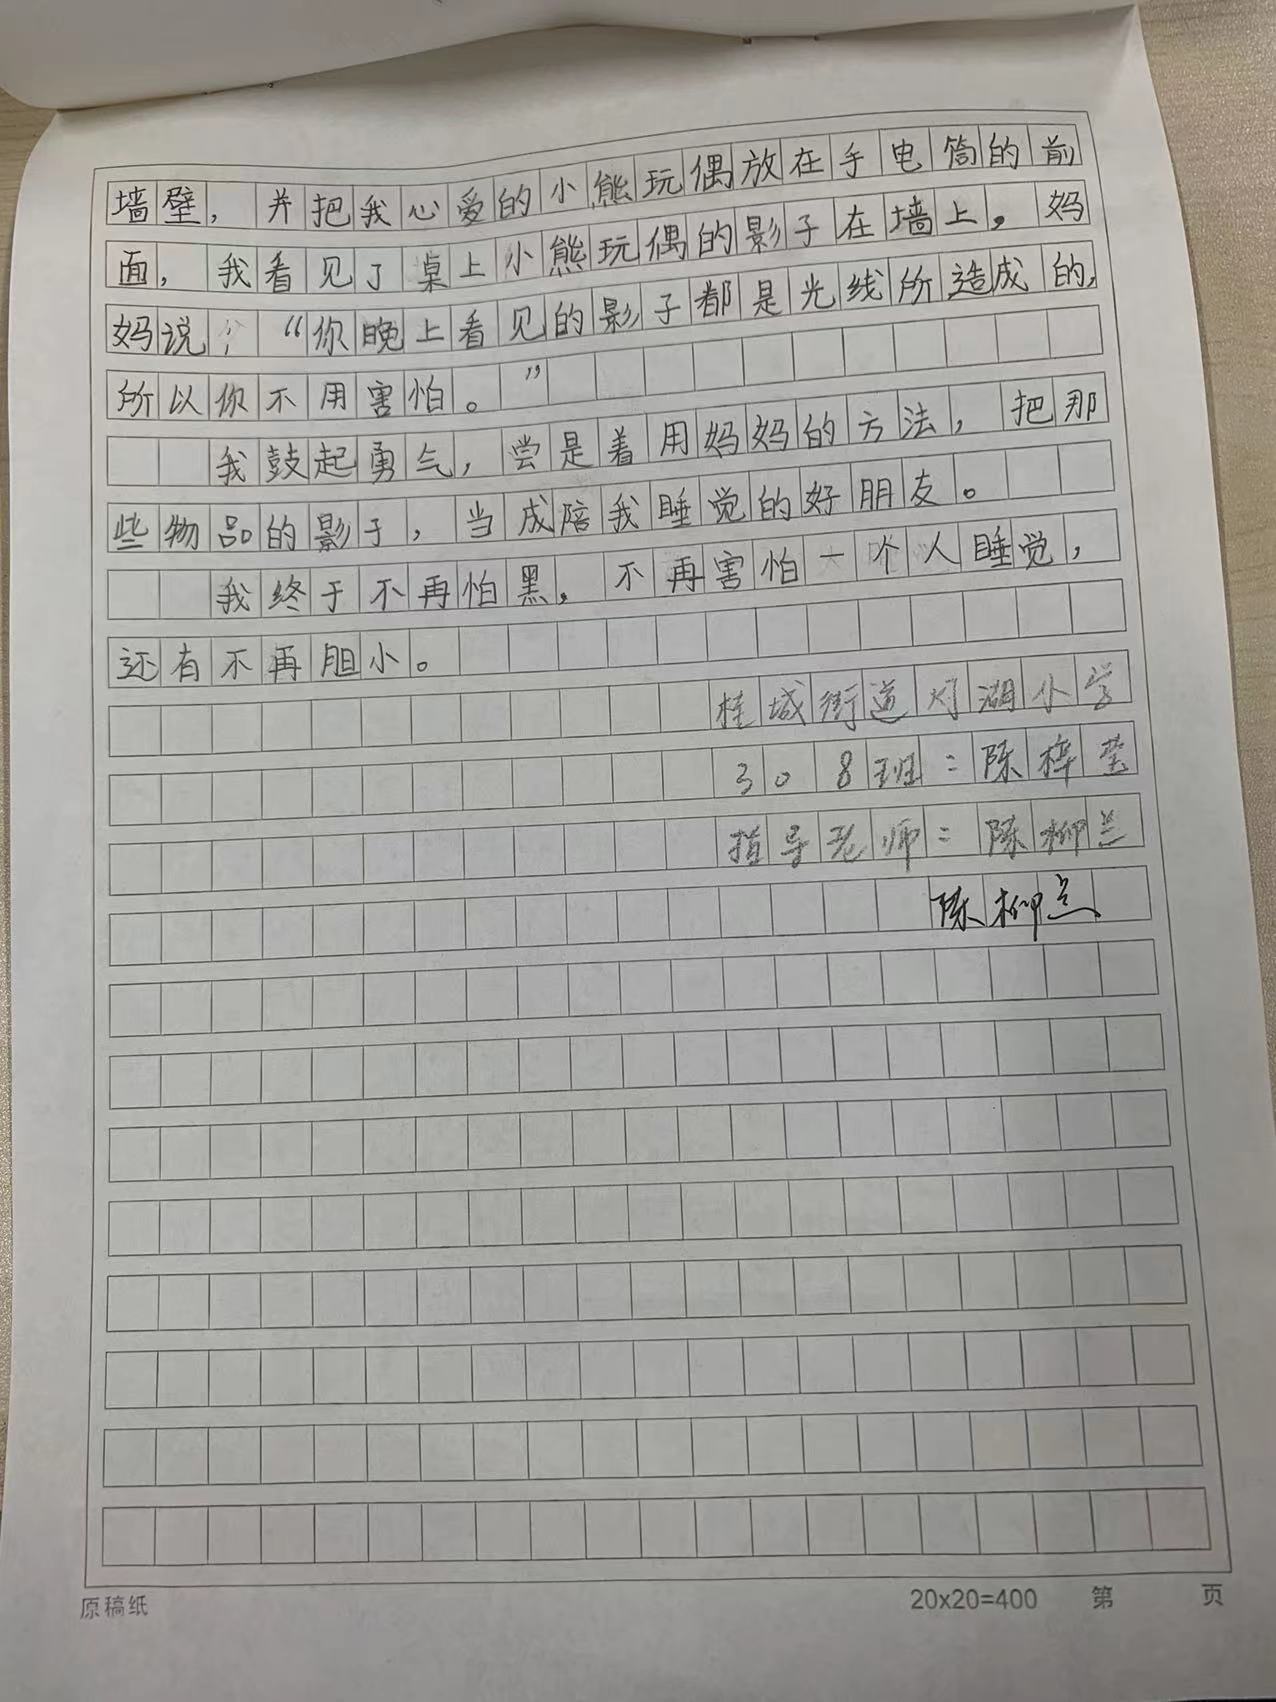 墙壁，并把我心爱的小熊玩偶放在手电筒的前
面，我看见了桌上小熊玩偶的影子在墙上。妈
妈说：“你晚上看见的影子都是光线所造成的，
所以你不用害怕。”
我鼓起勇气，尝是着用妈妈的方法，把那
些物品的影子，当成陪我睡觉的好朋友。
我终于不再怕黑，不再害怕一个人睡觉，
还有不再胆小。
桂城街道灯湖小学
308班：陈梓莹
指导老师：陈柳兰
陈柳兰
原稿纸
20x20=400 第 页